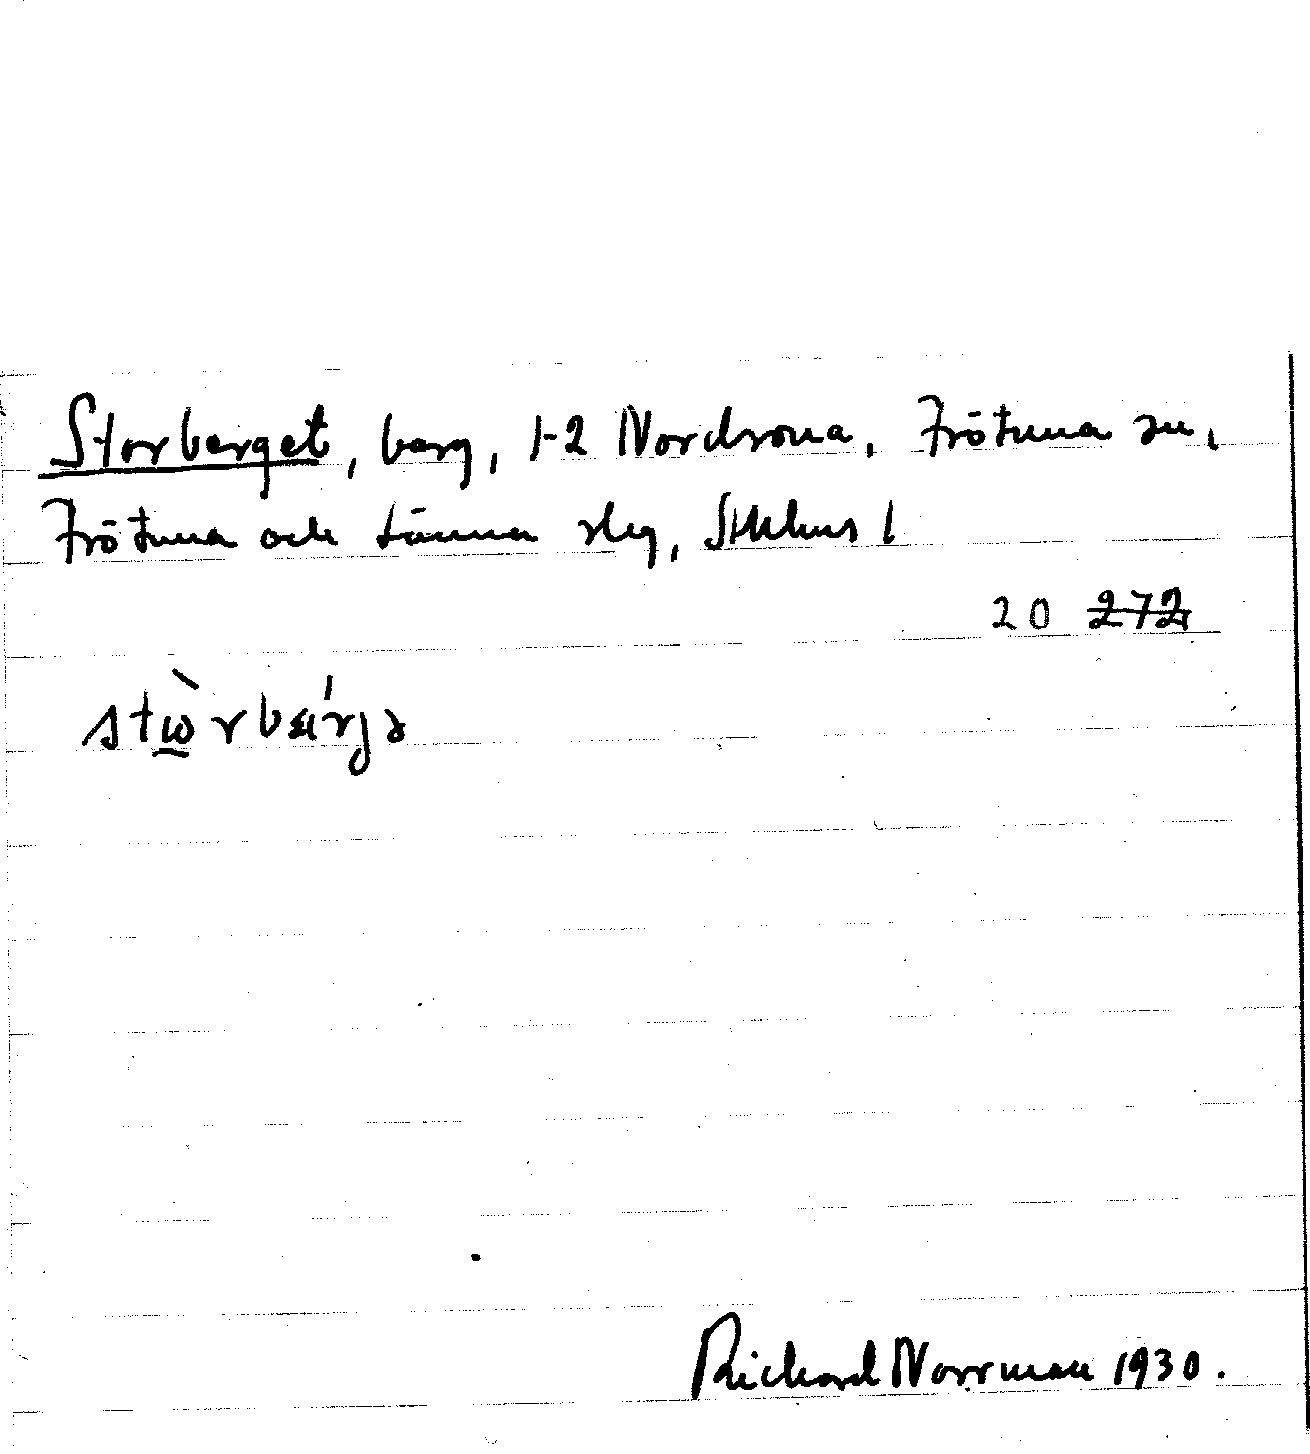 Storberget, berg, 1-2 Nordrona, Frötuna sn,
Frötuna och Länna slg, Sthlms l
20 272
Richard Norrman 1930.